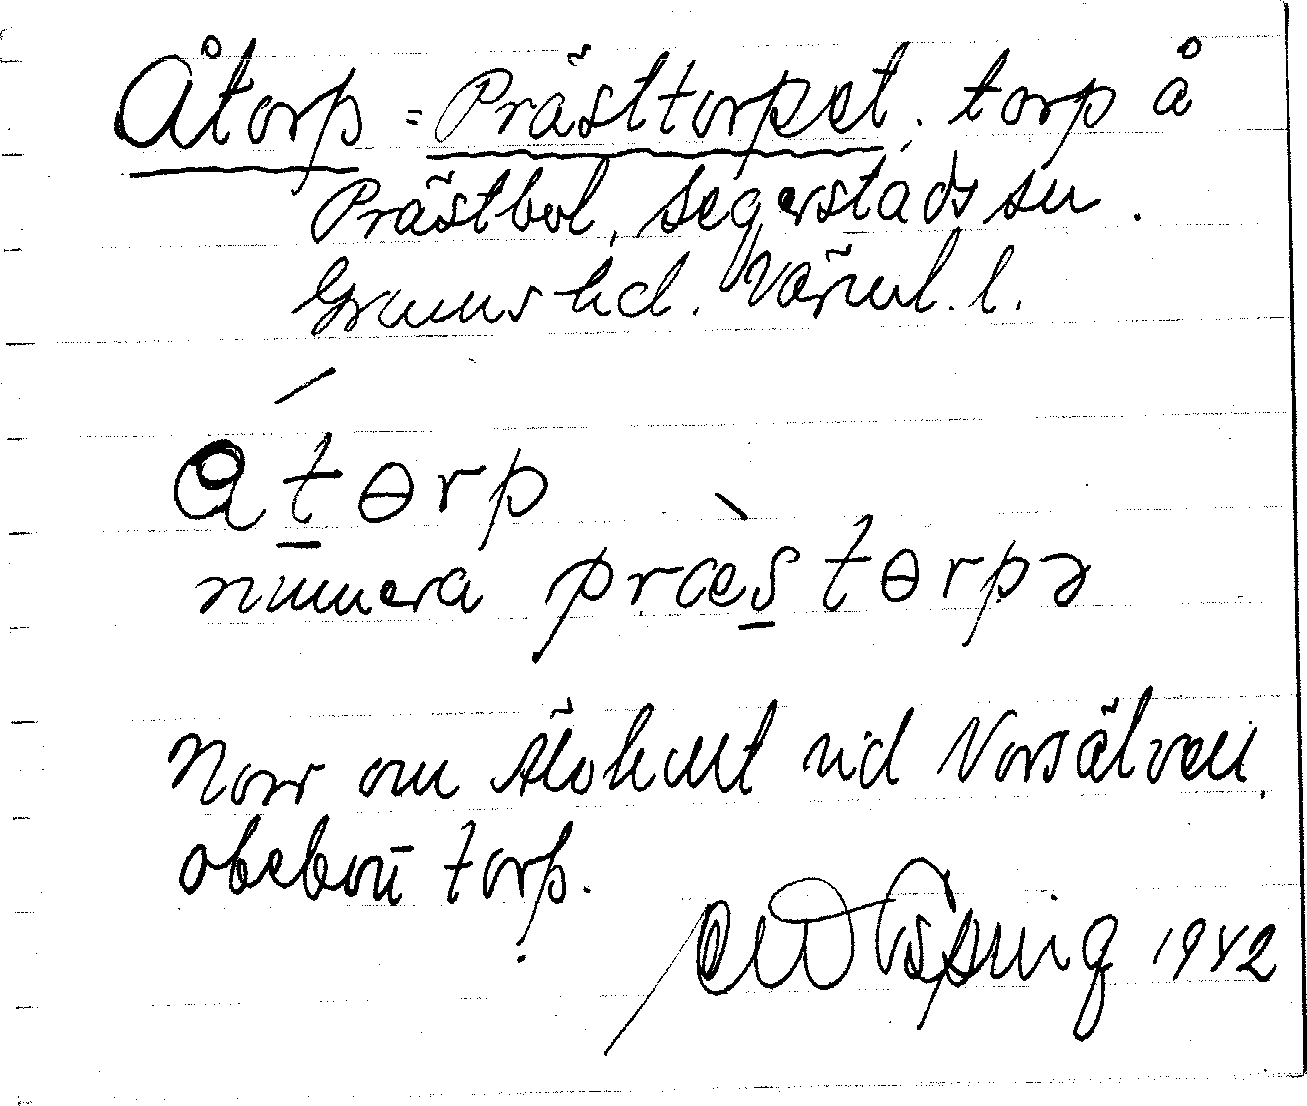 Åtorp = Prästtorpet, torp å
Prästbol, Segerstads sn.
Grums hd. Värml. l.
åtɵrp
numera præstɵrpə
Norr om Älvhult vid Norsälven,
obebott torp.
1942